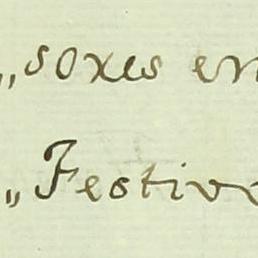 „soxes en
„Festivo